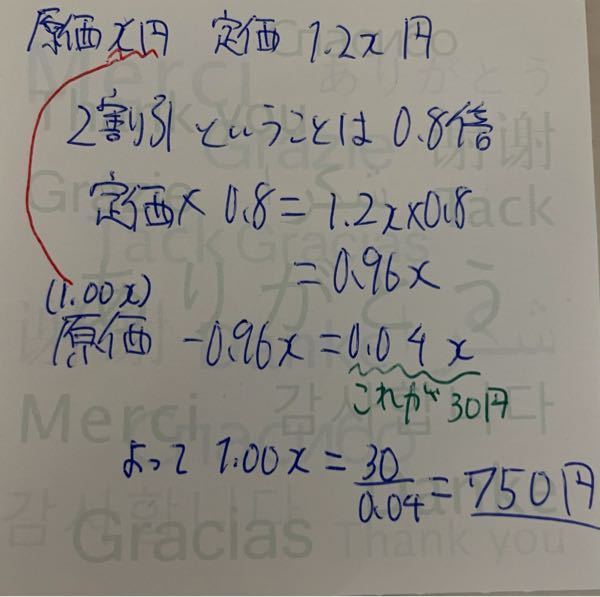 原価x円 定価 1.2x円
2割引ということは 0.8倍
定価× 0.8 = 1.2x×0.8
= 0.96x
(1.00x)
原価 -0.96x = 0.04x
これが30円
よって 1.00x = 30/0.04 = 750円
Merci
ありがとう
Thank you
Grazie
谢谢
Jack Gracias
ありがとう
Merci
감사합니다
Gracias
Thank you